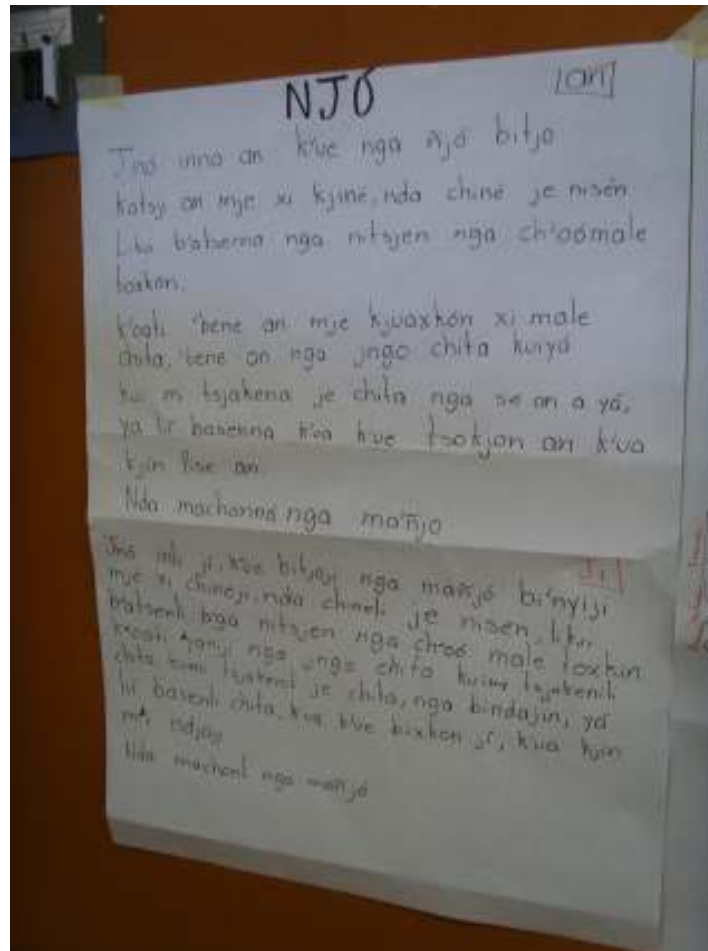 NJÓ
an
Jnó inna an k'ue nga ñjó bitjo
katsji an mje xi kjine, nda chine je nisén
Likui b'atsenna nga nitsjen nga ch'oómale
toxkón.
k'oati 'bene an mje kjuaxkón xi male
chita, 'bene an nga jngo chita kuiyá
kui mi tsjakena je chita nga se an a yá,
ya li basenna k'ua k'ue tsokjon an k'ua
kjin an
Nda machanná nga mañjo
Ji
Jnó inli ji, k'ue bitjoji nga mañjó bi'nyiji
mje xi chineji, nda chineli je nisen, likui
b'atsenli nga nitsjen nga ch'oó male toxkun
k'oati nga jngo chita kuiya tsjakenili
chita kuimi tsjakeni je chita, nga bindajin, yá
li basenli chita, k'ua k'ue bixkon ji, k'ua kjin
ndjay
Nda machanli nga mañjó